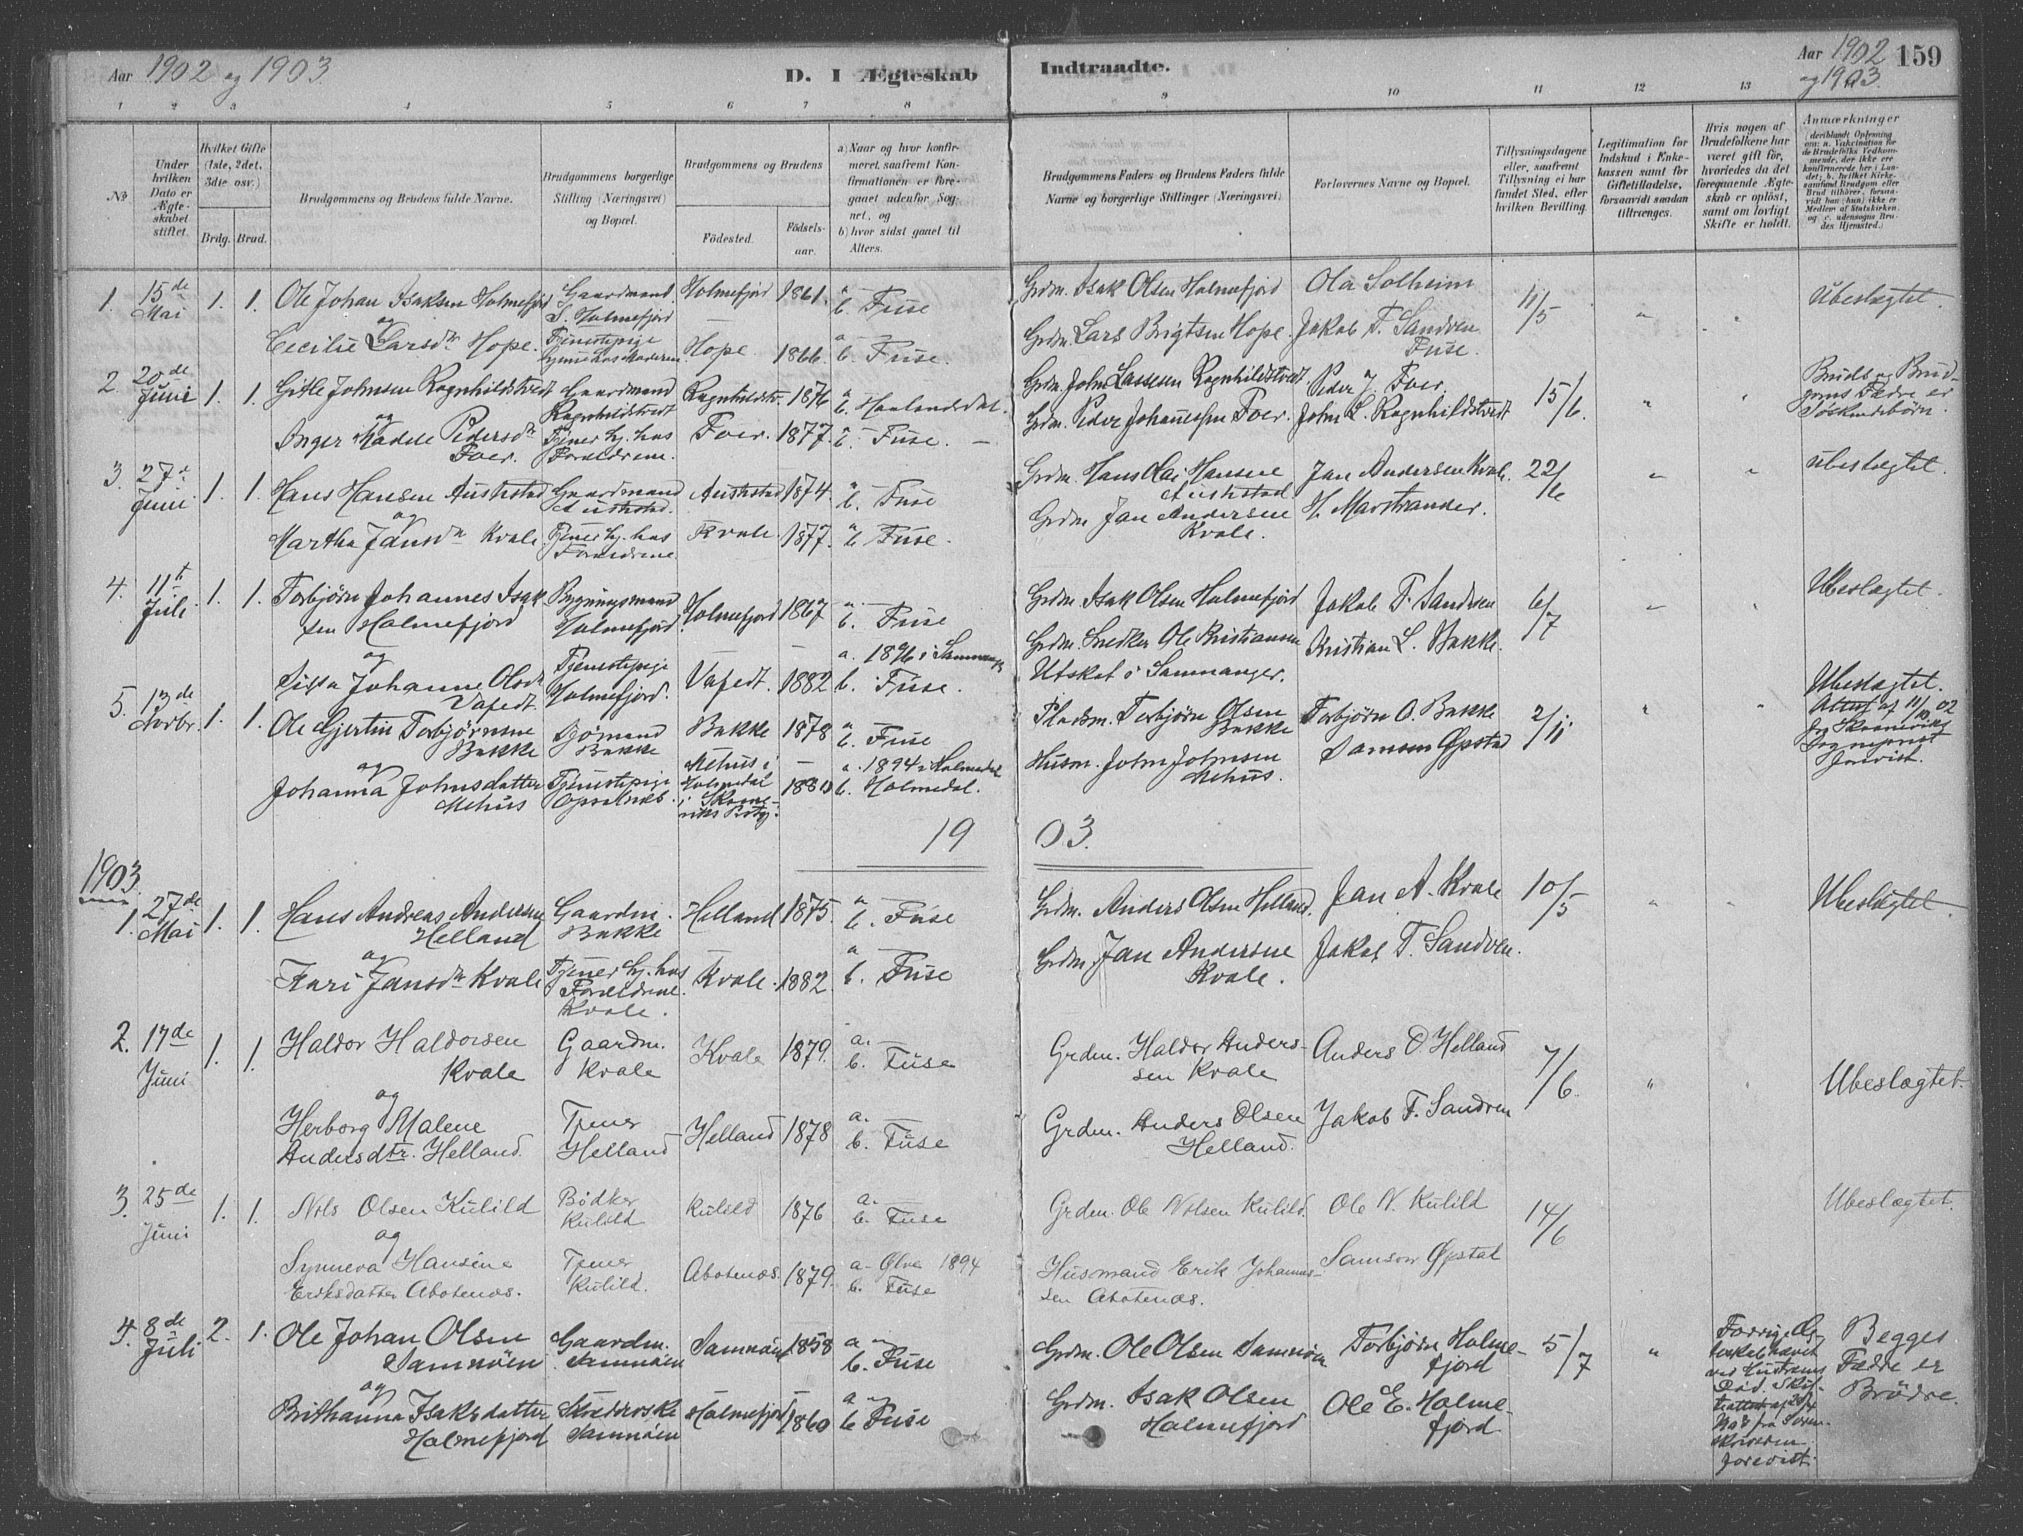 Aar 1902 og 1903
D. I Ægteskab Indtraadte.
Aar 1902 og 1903. 159
1 2 3 4 5 6 7 8 9 10 11 12 13
No
Under hvilken Dato er Ægteskabet stiftet.
Hvilket Gifte (1ste, 2det, 3die osv.)
Brdg. Brud.
Brudgommens og Brudens fulde Navne.
Brudgommens borgerlige Stilling (Næringsvei) og Bopæl.
Brudgommens og Brudens
Födested. Födsels-aar.
a) Naar og hvor konfirmeret, saafremt Konfirmationen er foregaaet udenfor Sognet, og
b) hvor sidst gaaet til Alters.
Brudgommens Faders og Brudens Faders fulde Navne og borgerlige Stillinger (Næringsvei)
Forlovernes Navne og Bopæl.
Tillysningsdagene eller, saafremt Tillysning ei har fundet Sted, efter hvilken Bevilling.
Legitimation for Indskud i Enkekassen samt for Giftetilladelse, forsaavidt saadan tiltrænges.
Hvis nogen af Brudefolkene har været gift för, hvorledes da det foregaaende Ægteskab er oplöst, samt om lovligt Skifte er holdt.
Anmærkninger (deriblandt Oplysning om: a. Vakcination for de Brudefolks Vedkommende, der ikke ere konfirmerede her i Landet; b. hvilket Kirkesamfund Brudgom eller Brud tilhörer, forsaavidt han (hun) ikke er Medlem af Statskirken, og c. udensogns Brudes Hjemsted.)
1. 15de Mai 1. 1. Ole Johan Isaksen Holmefjord Gaardmand S. Holmefjord Holmefjord 1861. a b. Fuse Grdm. Isak Olsen Holmefjord Ola Solheim 11/5 " " Ubeslægtet.
og Cecilie Larsdtr Hope. Tjenestepige hjemme hos Moderen Hope 1866. a b. Fuse. Grdm. Lars Brigtsen Hope. Jakob T. Sandven Fuse.
2. 20de Juni 1. 1. Gitle Johnsen Ragnhildstvedt Gaardmand Ragnhildstvedt Ragnhildstv. 1876 a b. Haalandsdal. Grdm. John Lassesen Ragnhildstvedt Peder J. Foer. 15/6. " " Bruds og Brudgoms Fædre er Söskendebörn.
og Anger Madele Pedersdtr Foer. Tjener hj. hos Forældrene. Foer. 1877. a b. Fuse. Grdm. Peder Johannessen Foer. John L. Ragnhildstvedt
3. 27de Juni 1. 1. Hans Hansen Austestad Gaardmand Austestad. Austestad 1874. a b. Fuse Grdm. Hans Olai Hansen Austestad. Jan Andersen Kvale. 22/6 " " ubeslægtet.
og Martha Jansdtr Kvale. Tjener hj. hos Forældrene Kvale. 1877. a b. Fuse. Grdm. Jan Andersen Kvale. H. Marstrander.
4. 11te Juli. 1. 1. Torbjørn Johannes Isaksen Holmefjord Bygningsmand Holmefjord Holmefjord 1867 a. b. Fuse Grdm. Isak Olsen Holmefjord Jakob T. Sandven 6/7 " " Ubeslægtet.
og Johanne Olsdtr Vafedt. Tjenestepige Holmefjord. Vafedt. 1882 a. 1896 i Samnanger b. Fuse. Grdm. Snedker Ole Kristiansen Utskot i Samnanger. Kristian L. Bakke.
5. 13de Novbr. 1. 1. Ole Gjertin Torbjørnsen Bakke Sjömand Bakke Bakke 1878 a b. Fuse Pladsm. Torbjørn Olsen Bakke Torbjørn O. Bakke 2/11 " " Ubeslægtet. Attest af 11/10 02 fra Skaneviks Sogneprest forevist.
og Johanna Johnsdatter Mehus Tjenestepige Mehus i Holmedal i Skaneviks Prstgj. 1880 a. 1894 i Holmedal b. Holmedal. Husm. John Johnsen Mehus. Samson Øpstad
1903.
1903.
1. 27de Mai 1. 1. Hans Andreas Andersen Helland Gaardm. Bakke Helland 1875. a b. Fuse Grdm. Anders Olsen Helland. Jan A. Kvale 10/5 " " Ubeslægtet.
og Kari Jansdtr Kvale Tjener hj. hos Forældrene Kvale. Kvale. 1882. a b. Fuse Grdm. Jan Andersen Kvale. Jakob T. Sandven.
2. 17de Juni 1. 1. Haldor Haldorsen Kvale Gaardm. Kvale Kvale 1879. a. b. Fuse Grdm. Haldor Andersen Kvale Anders O Helland 7/6. " " Ubeslægtet.
og Herborg Malene Andersdtr. Helland. Tjener Helland Helland 1878 a. b. Fuse Grdm. Anders Olsen Helland. Jakob T. Sandven
3. 25de Juni 1. 1. Nils Olsen Kulild Bødker Kulild Kulild 1876 a. b. Fuse Grdm. Ole Nilsen Kulild. Ole N. Kulild 14/6 Ubeslægtet.
og Synneva Hansine Eriksdatter Abotenæs. Tjener Kulild. Abotenæs. 1879. a. Ølve 1894 b. Fuse Husmand Erik Johannessen Abotenæs. Samson Øpstad
4. 8de Juli 2. 1. Ole Johan Olsen Samnöen Gaardm. Samnöen Samnöen 1858 a b. Fuse Grdm. Ole Olsen Samnöen Torbjørn Holmefjord 5/7 " Forrige Ægteskab hævet ved Hustruens Död. Skifteattest af 20/4 1903 fra Sorenskriveren forevist. Begges Fædre er Brödre.
og Brithanna Isaksdatter Holmefjord Samnöen Holmefjord 1860 a b Fuse Grdm. Isak Olsen Holmefjord Ole E. Holmefjord